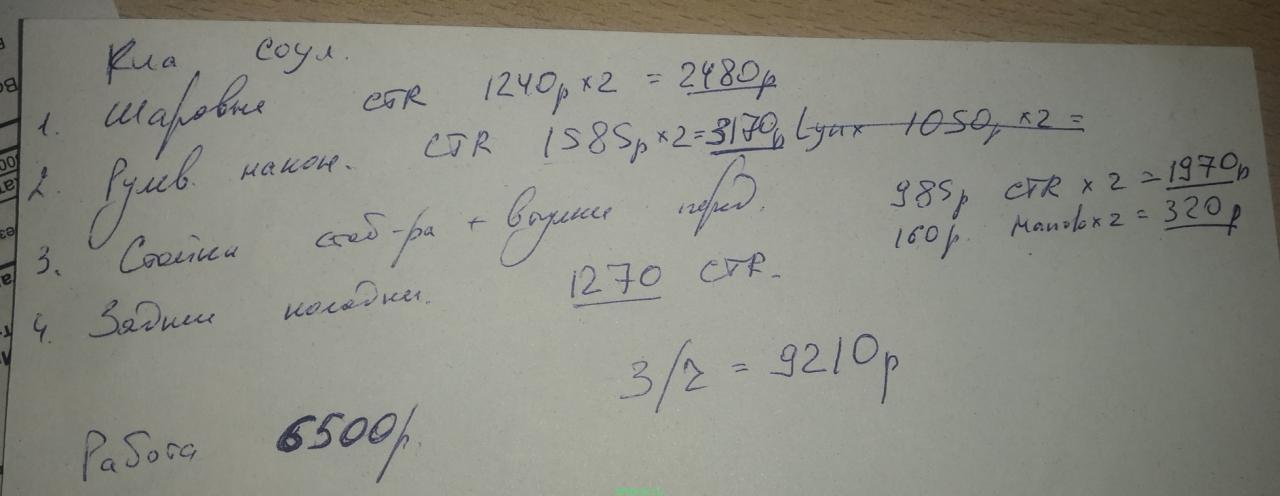 Киа Соул.
1. Шаровые CTR 1240р ×2 = 2480р
2. Рулев. након. CTR 1585р ×2=3170р 1050р ×2 =
3. Стойки стаб-ра + втулки перед. 985р CTR ×2 = 1970р
160р. Mando×2 = 320р
4. Задние колодки. 1270 CTR.
З/ч = 9210р
Работа 6500р.